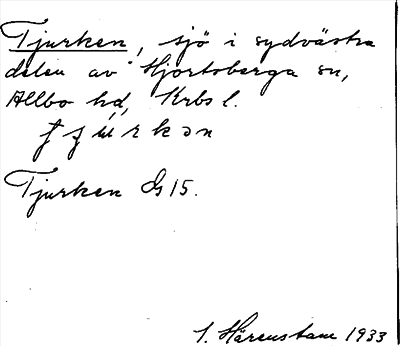 Tjurken, sjö i sydvästra
delen av Hjortsberga sn,
Allbo hd, Krbs l.
Tjurken G 15.
S. Härenstam 1933